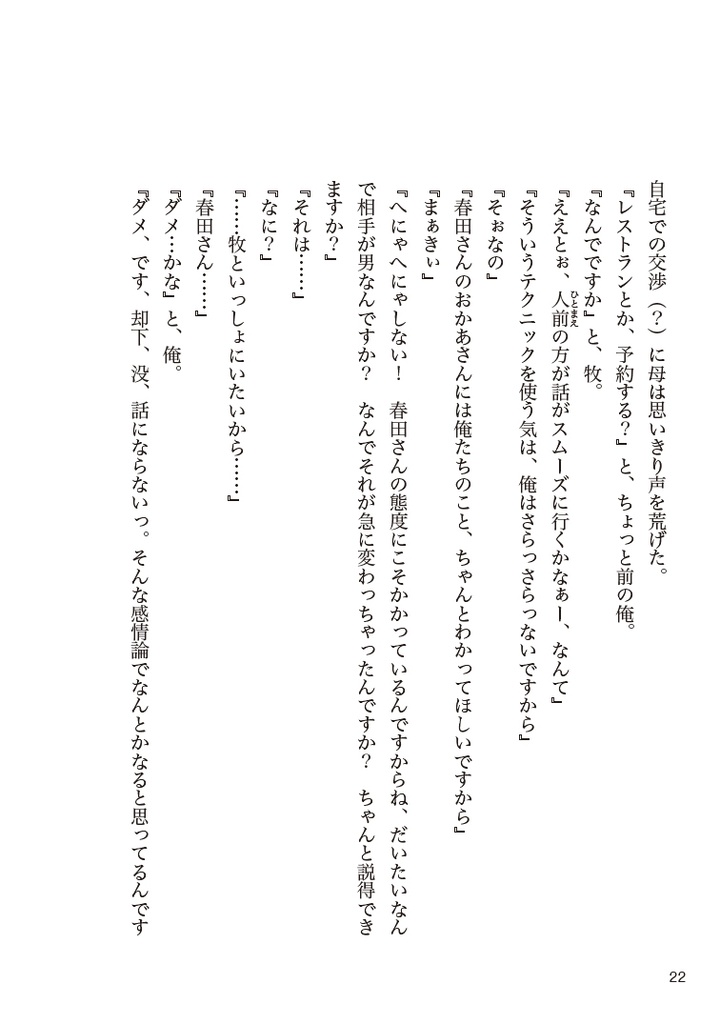 自宅での交渉（？）に母は思いきり声を荒げた。
『レストランとか、予約する？』と、ちょっと前の俺。
『なんでですか』と、牧。
『ええとぉ、人前の方が話がスムーズに行くかなぁー、なんて』
ひとまえ
『そういうテクニックを使う気は、俺はさらっさらっないですから』
『そぉなの』
『春田さんのおかあさんには俺たちのこと、ちゃんとわかってほしいですから』
『まぁきぃ』
『へにゃへにゃしない！　春田さんの態度にこそかかっているんですからね、だいたいなん
で相手が男なんですか？　なんでそれが急に変わっちゃったんですか？　ちゃんと説得でき
ますか？』
『それは……』
『なに？』
『……牧といっしょにいたいから……』
『春田さん……』
『ダメ…かな』と、俺。
『ダメ、です、却下、没、話にならないっ。そんな感情論でなんとかなると思ってるんです
22